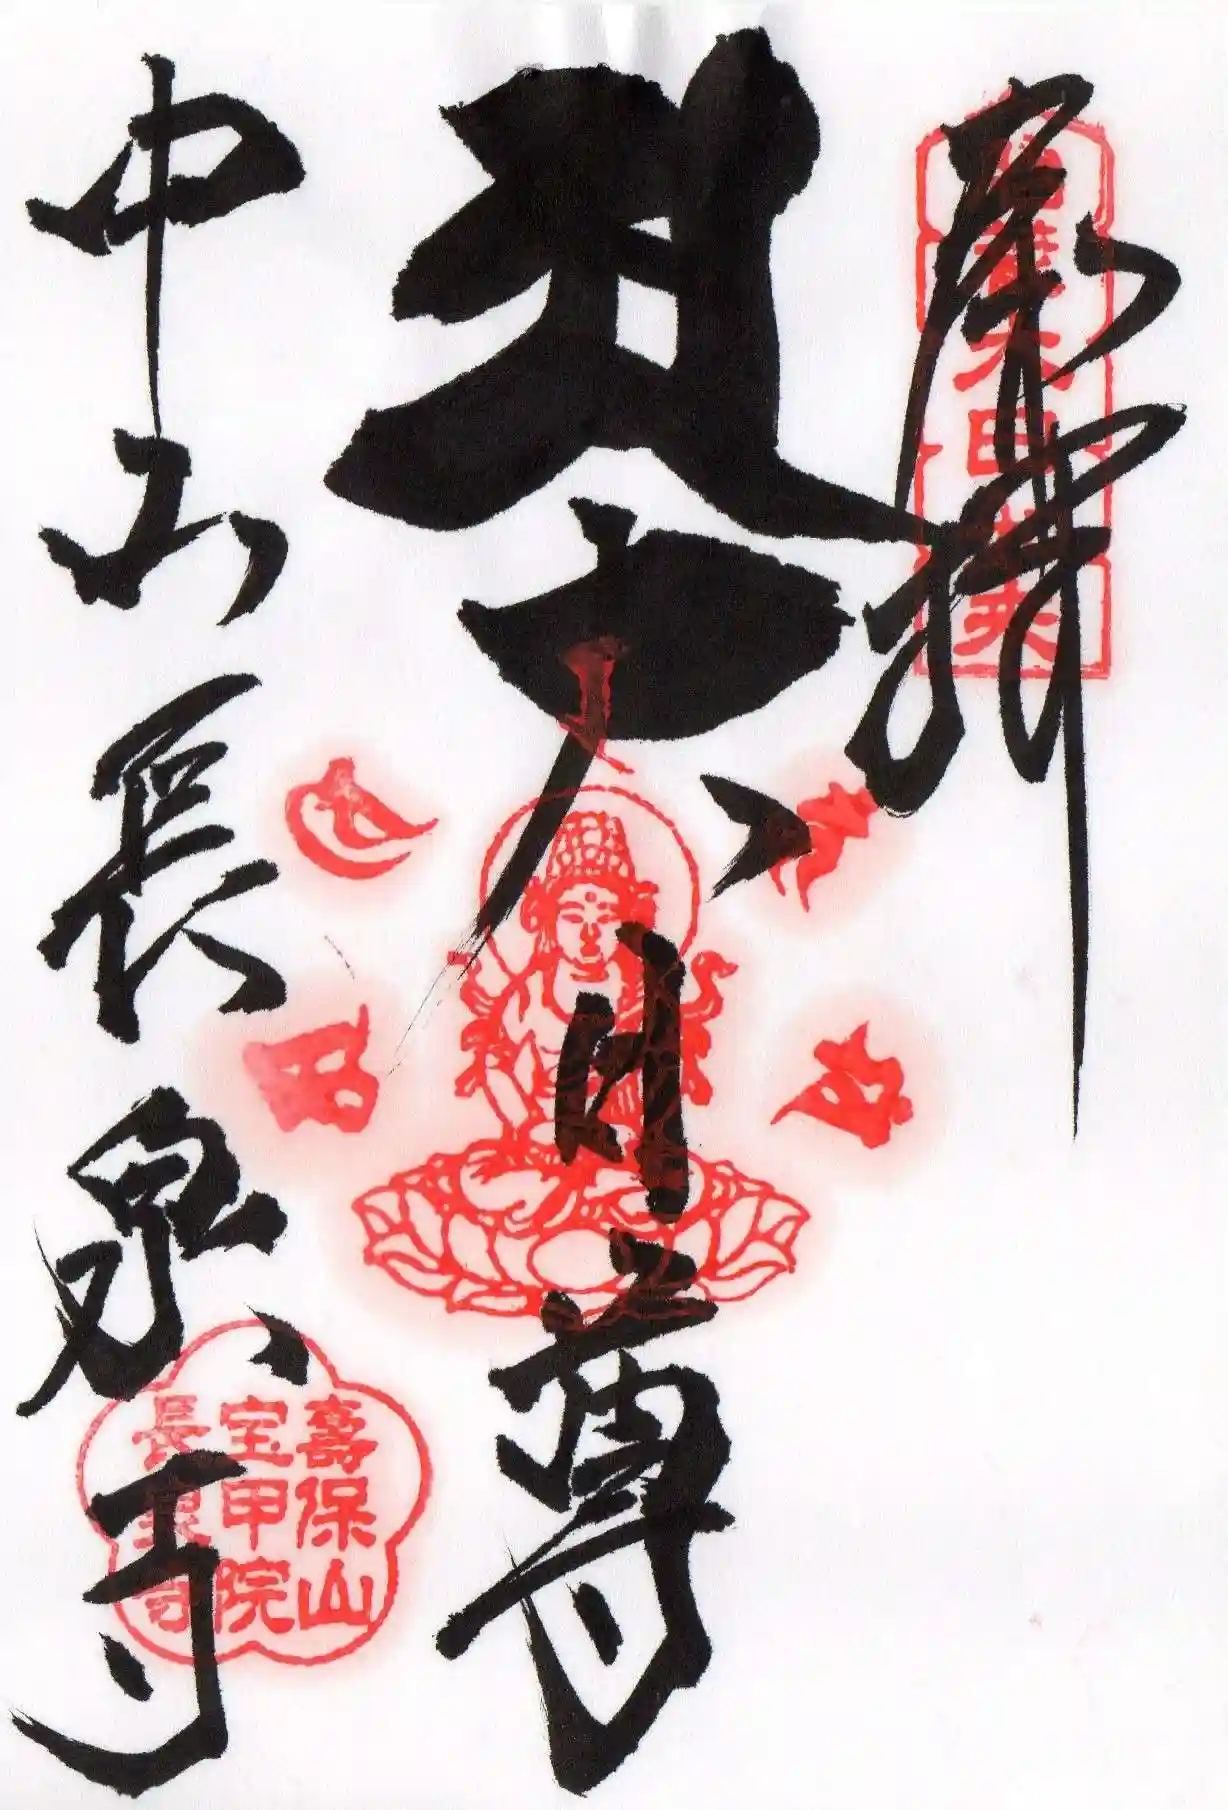 奉拝
大日如来
大日尊
中山長泉寺
壽保山
宝甲院
長泉寺